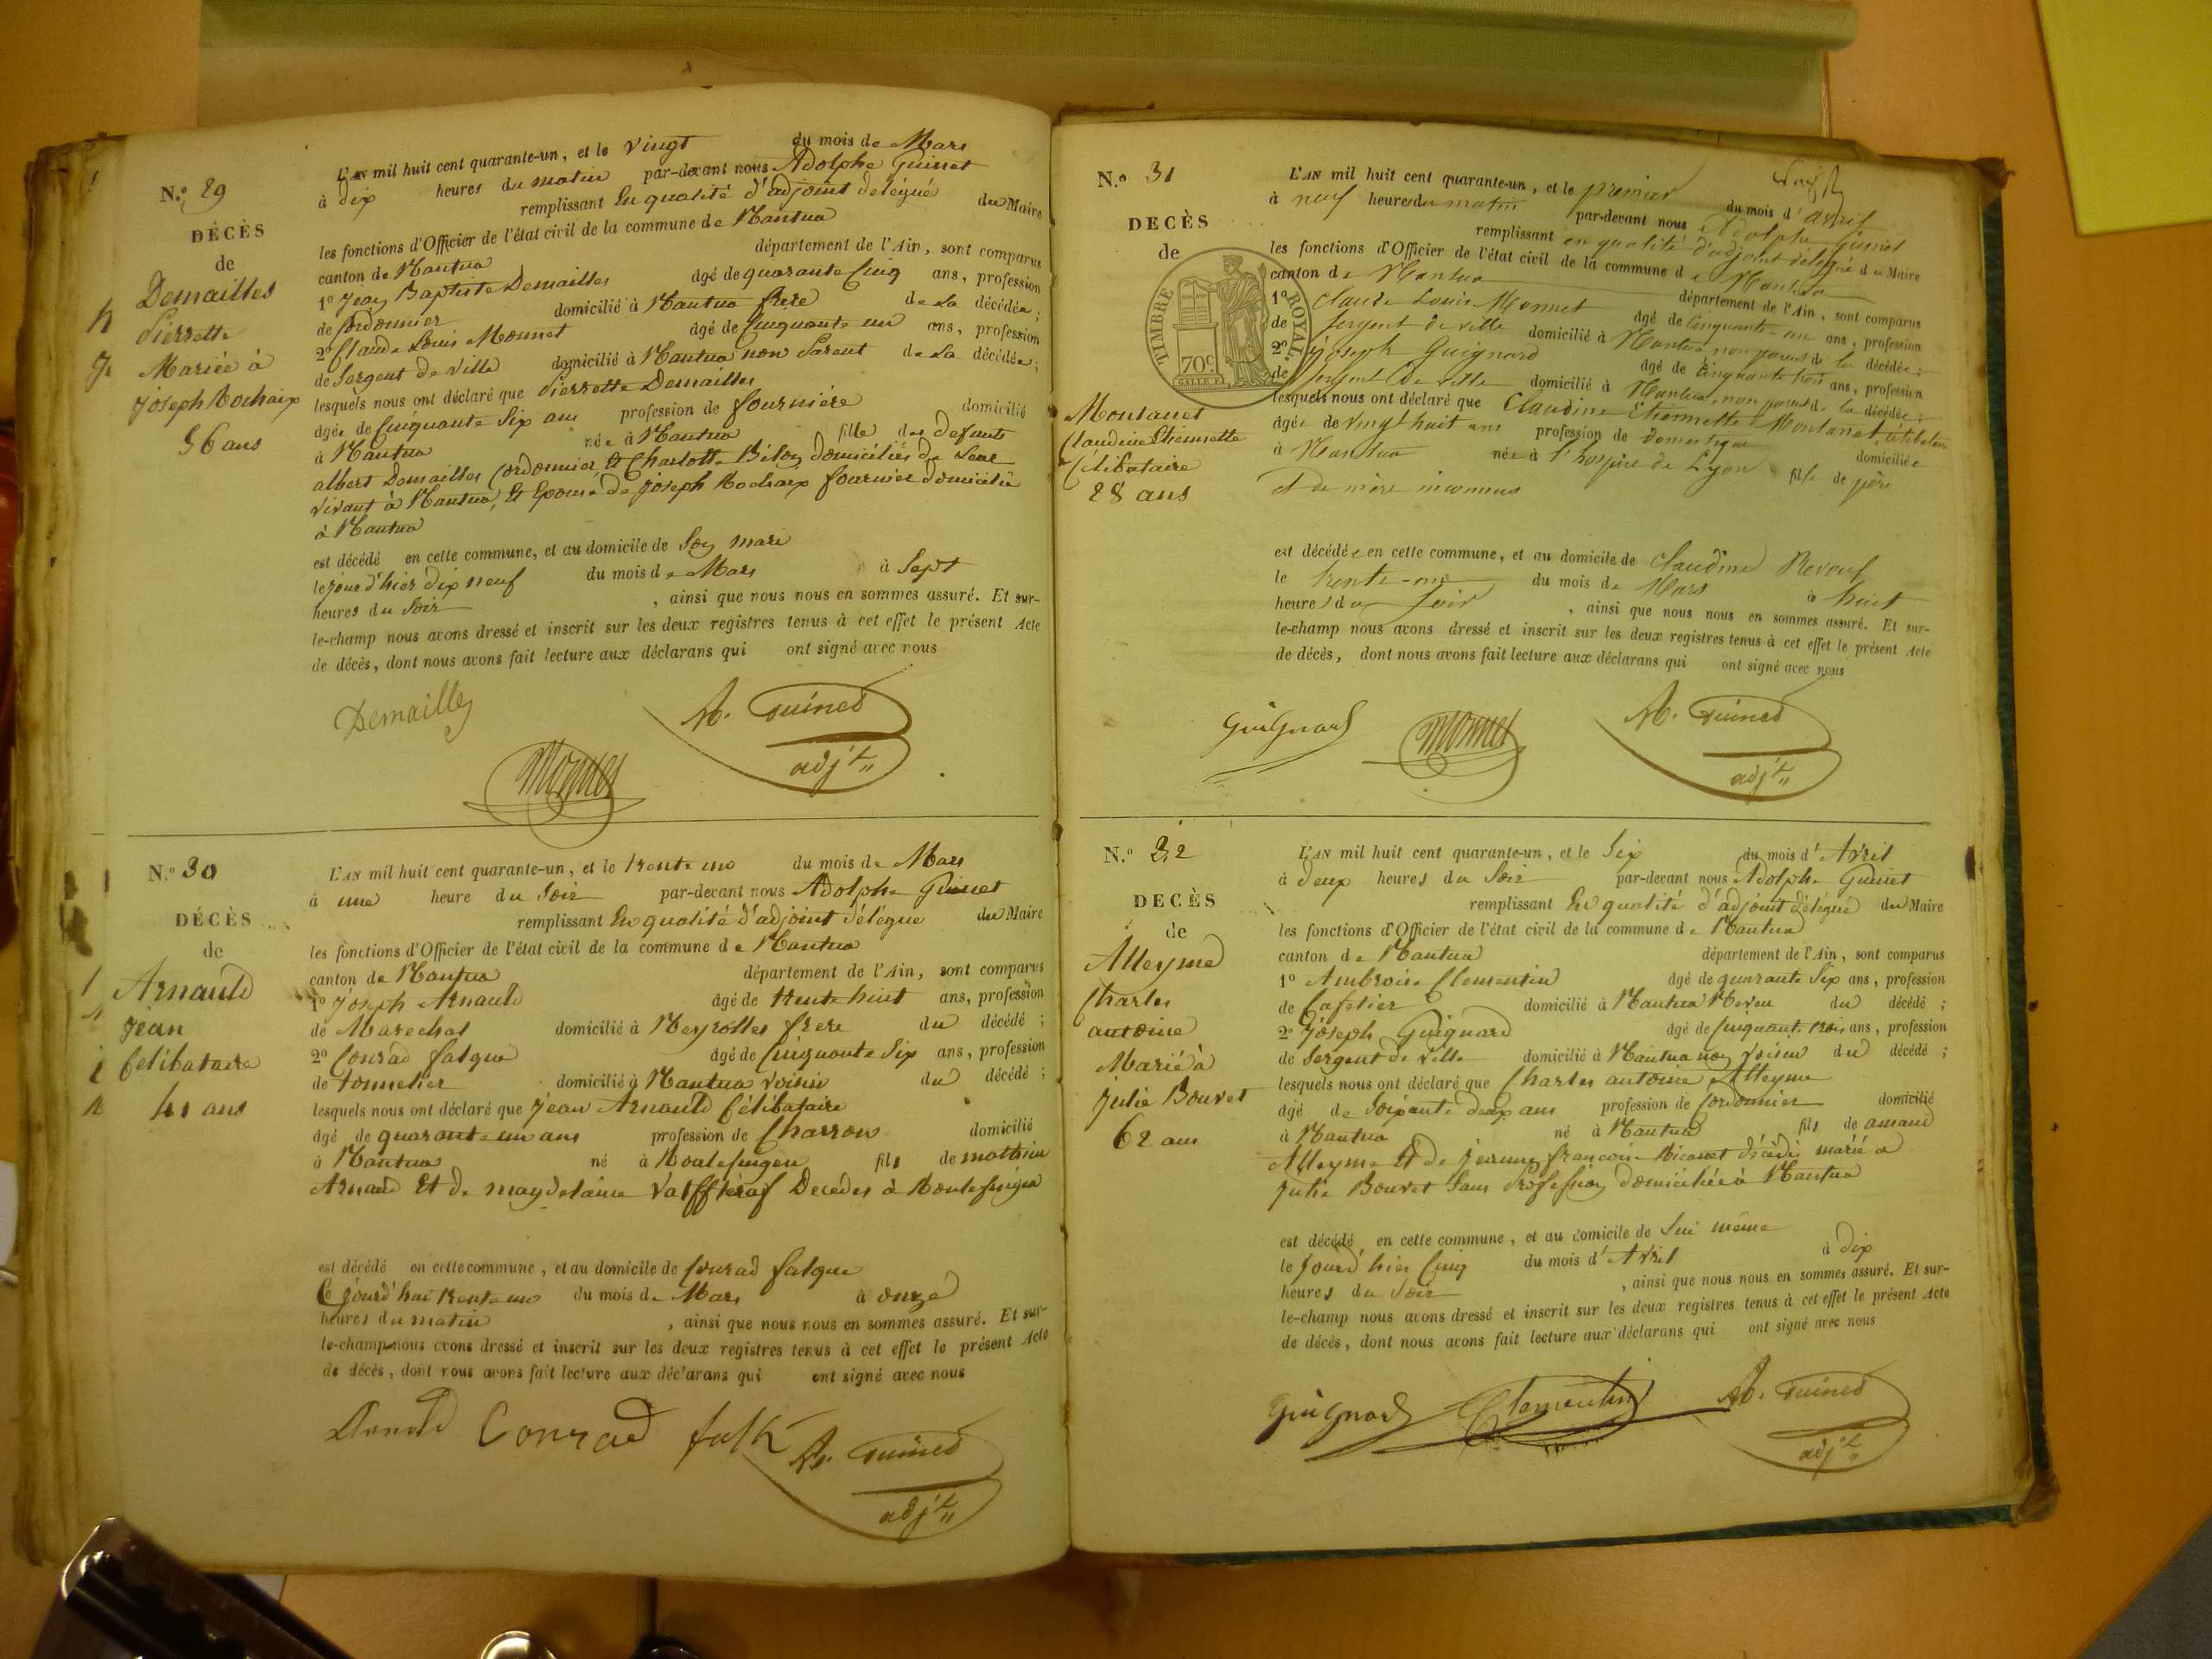 N.o 29
DÉCÈS
de
Demailles
Pierrette
Mariée à
Joseph Rochaix
56 ans
L'AN mil huit cent quarante-un, et le vingt du mois de Mars
à dix heures du matin par-devant nous Adolphe Guinet
remplissant En qualité d'adjoint délégué du Maire
les fonctions d'Officier de l'état civil de la commune de Nantua
canton de Nantua département de l'Ain, sont comparus
1o Jean Baptiste Demailles âgé de quarante cinq ans, profession
de Cordonnier domicilié à Nantua frère de la décédée;
2o Claude Louis Monnet âgé de cinquante un ans, profession
de Sergent de ville domicilié à Nantua non Parent de la décédée;
lesquels nous ont déclaré que Pierrette Demailles
âgée de cinquante six ans profession de fournière domicilié
à Nantua née à Nantua fille des defunts
albert Demailles Cordonnier, Et Charlotte domiciliés de leur
vivant à Nantua, Et Epouse de Joseph Rochaix fournier domicilié
à Nantua
est décédé en cette commune, et au domicile de Son mari
le jour d'hier dix neuf du mois de Mars à Sept
heures du Soir, ainsi que nous nous en sommes assuré. Et sur-
le-champ nous avons dressé et inscrit sur les deux registres tenus à cet effet le présent Acte
de décès, dont nous avons fait lecture aux déclarans qui ont signé avec nous
Demailles
Monnet
A. Guinet
adjt
N.o 30
DÉCÈS
de
Arnauld
Jean
Célibataire
41 ans
L'AN mil huit cent quarante-un, et le trente un du mois de Mars
à une heure du Soir par-devant nous Adolphe Guinet
remplissant En qualité d'adjoint délégué du Maire
les fonctions d'Officier de l'état civil de la commune de Nantua
canton de Nantua département de l'Ain, sont comparus
1o Joseph Arnauld âgé de trente huit ans, profession
de Marechal domicilié à Neyrolles frere du décédé;
2o Conrad falque âgé de Cinquante Six ans, profession
de tonnelier domicilié à Nantua voisin du décédé;
lesquels nous ont déclaré que Jean Arnauld Célibataire
âgé de quarante un ans profession de Charron domicilié
à Nantua né à fils de mathieu
Arnaud Et de magdelaine Decedes à
est décédé en cette commune, et au domicile de Conrad falque
Ce jourd'hui trente un du mois de Mars à onze
heures du matin, ainsi que nous nous en sommes assuré. Et sur-
le-champ nous avons dressé et inscrit sur les deux registres tenus à cet effet le présent Acte
de décès, dont nous avons fait lecture aux déclarans qui ont signé avec nous
Arnold Conrad falk A. Guinet
adjt
N.o 31
DECÈS
de
TIMBRE ROYAL
70c
Montanet
Claudine Etiennette
Célibataire
28 ans
L'AN mil huit cent quarante-un, et le premier du mois d'avril
à neuf heures du matin par-devant nous Adolphe Guinet
remplissant en qualité d'adjoint délégué du Maire
les fonctions d'Officier de l'état civil de la commune de Nantua
canton de Nantua département de l'Ain, sont comparus
1o Claude Louis Monnet âgé de cinquante-un ans, profession
de Sergent de ville domicilié à Nantua non parent de la décédée;
2o Joseph Guignard âgé de cinquante trois ans, profession
de Sergent de ville domicilié à Nantua, non parent de la décédée;
lesquels nous ont déclaré que Claudine Etiennette Montanet, célibataire
âgée de vingt huit ans profession de domestique domiciliée
à Nantua née à l'hospice de Lyon fille de père
et de mère inconnus
est décédée en cette commune, et au domicile de Claudine
le trente-un du mois de Mars à huit
heures du Soir, ainsi que nous nous en sommes assuré. Et sur-
le-champ nous avons dressé et inscrit sur les deux registres tenus à cet effet le présent Acte
de décès, dont nous avons fait lecture aux déclarans qui ont signé avec nous
Guignard
Monnet
A. Guinet
adjt
N.o 32
DECÈS
de
Alleyme
Charles
antoine
Marié à
Julie Bouvet
62 ans
L'AN mil huit cent quarante-un, et le Six du mois d'Avril
à deux heures du Soir par-devant nous Adolphe Guinet
remplissant En qualité d'adjoint délégué du Maire
les fonctions d'Officier de l'état civil de la commune de Nantua
canton de Nantua département de l'Ain, sont comparus
1o Ambroise Clementin âgé de quarante Six ans, profession
de Cafetier domicilié à Nantua Neveu du décédé;
2o Joseph Guignard âgé de Cinquante trois ans, profession
de Sergent de ville domicilié à Nantua non voisin du décédé;
lesquels nous ont déclaré que Charles antoine Alleyme
âgé de Soixante deux ans profession de Cordonnier domicilié
à Nantua né à Nantua fils de amand
Alleyme Et de françoise décédés marié a
Julie Bouvet Sans Profession domiciliée à Nantua
est décédé en cette commune, et au domicile de Lui même
le Jourd'hier Cinq du mois d'Avril à dix
heures du Soir, ainsi que nous nous en sommes assuré. Et sur-
le-champ nous avons dressé et inscrit sur les deux registres tenus à cet effet le présent Acte
de décès, dont nous avons fait lecture aux déclarans qui ont signé avec nous
Guignard Clementin A. Guinet
adjt